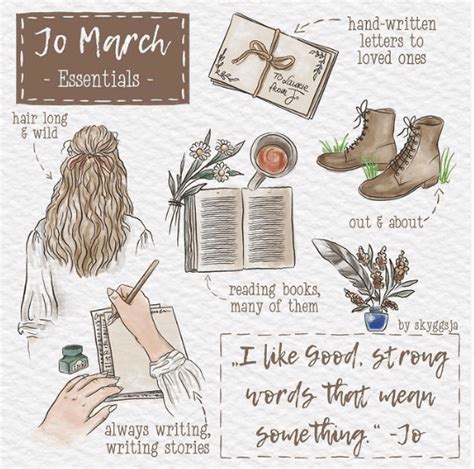 Jo March
- Essentials -
hand-written
letters to
loved ones
To Laurie
from Jo
hair long
& wild
out & about
reading books,
many of them
by skyggsja
always writing,
writing stories
„I like Good, strong
words that mean
something.“ -Jo